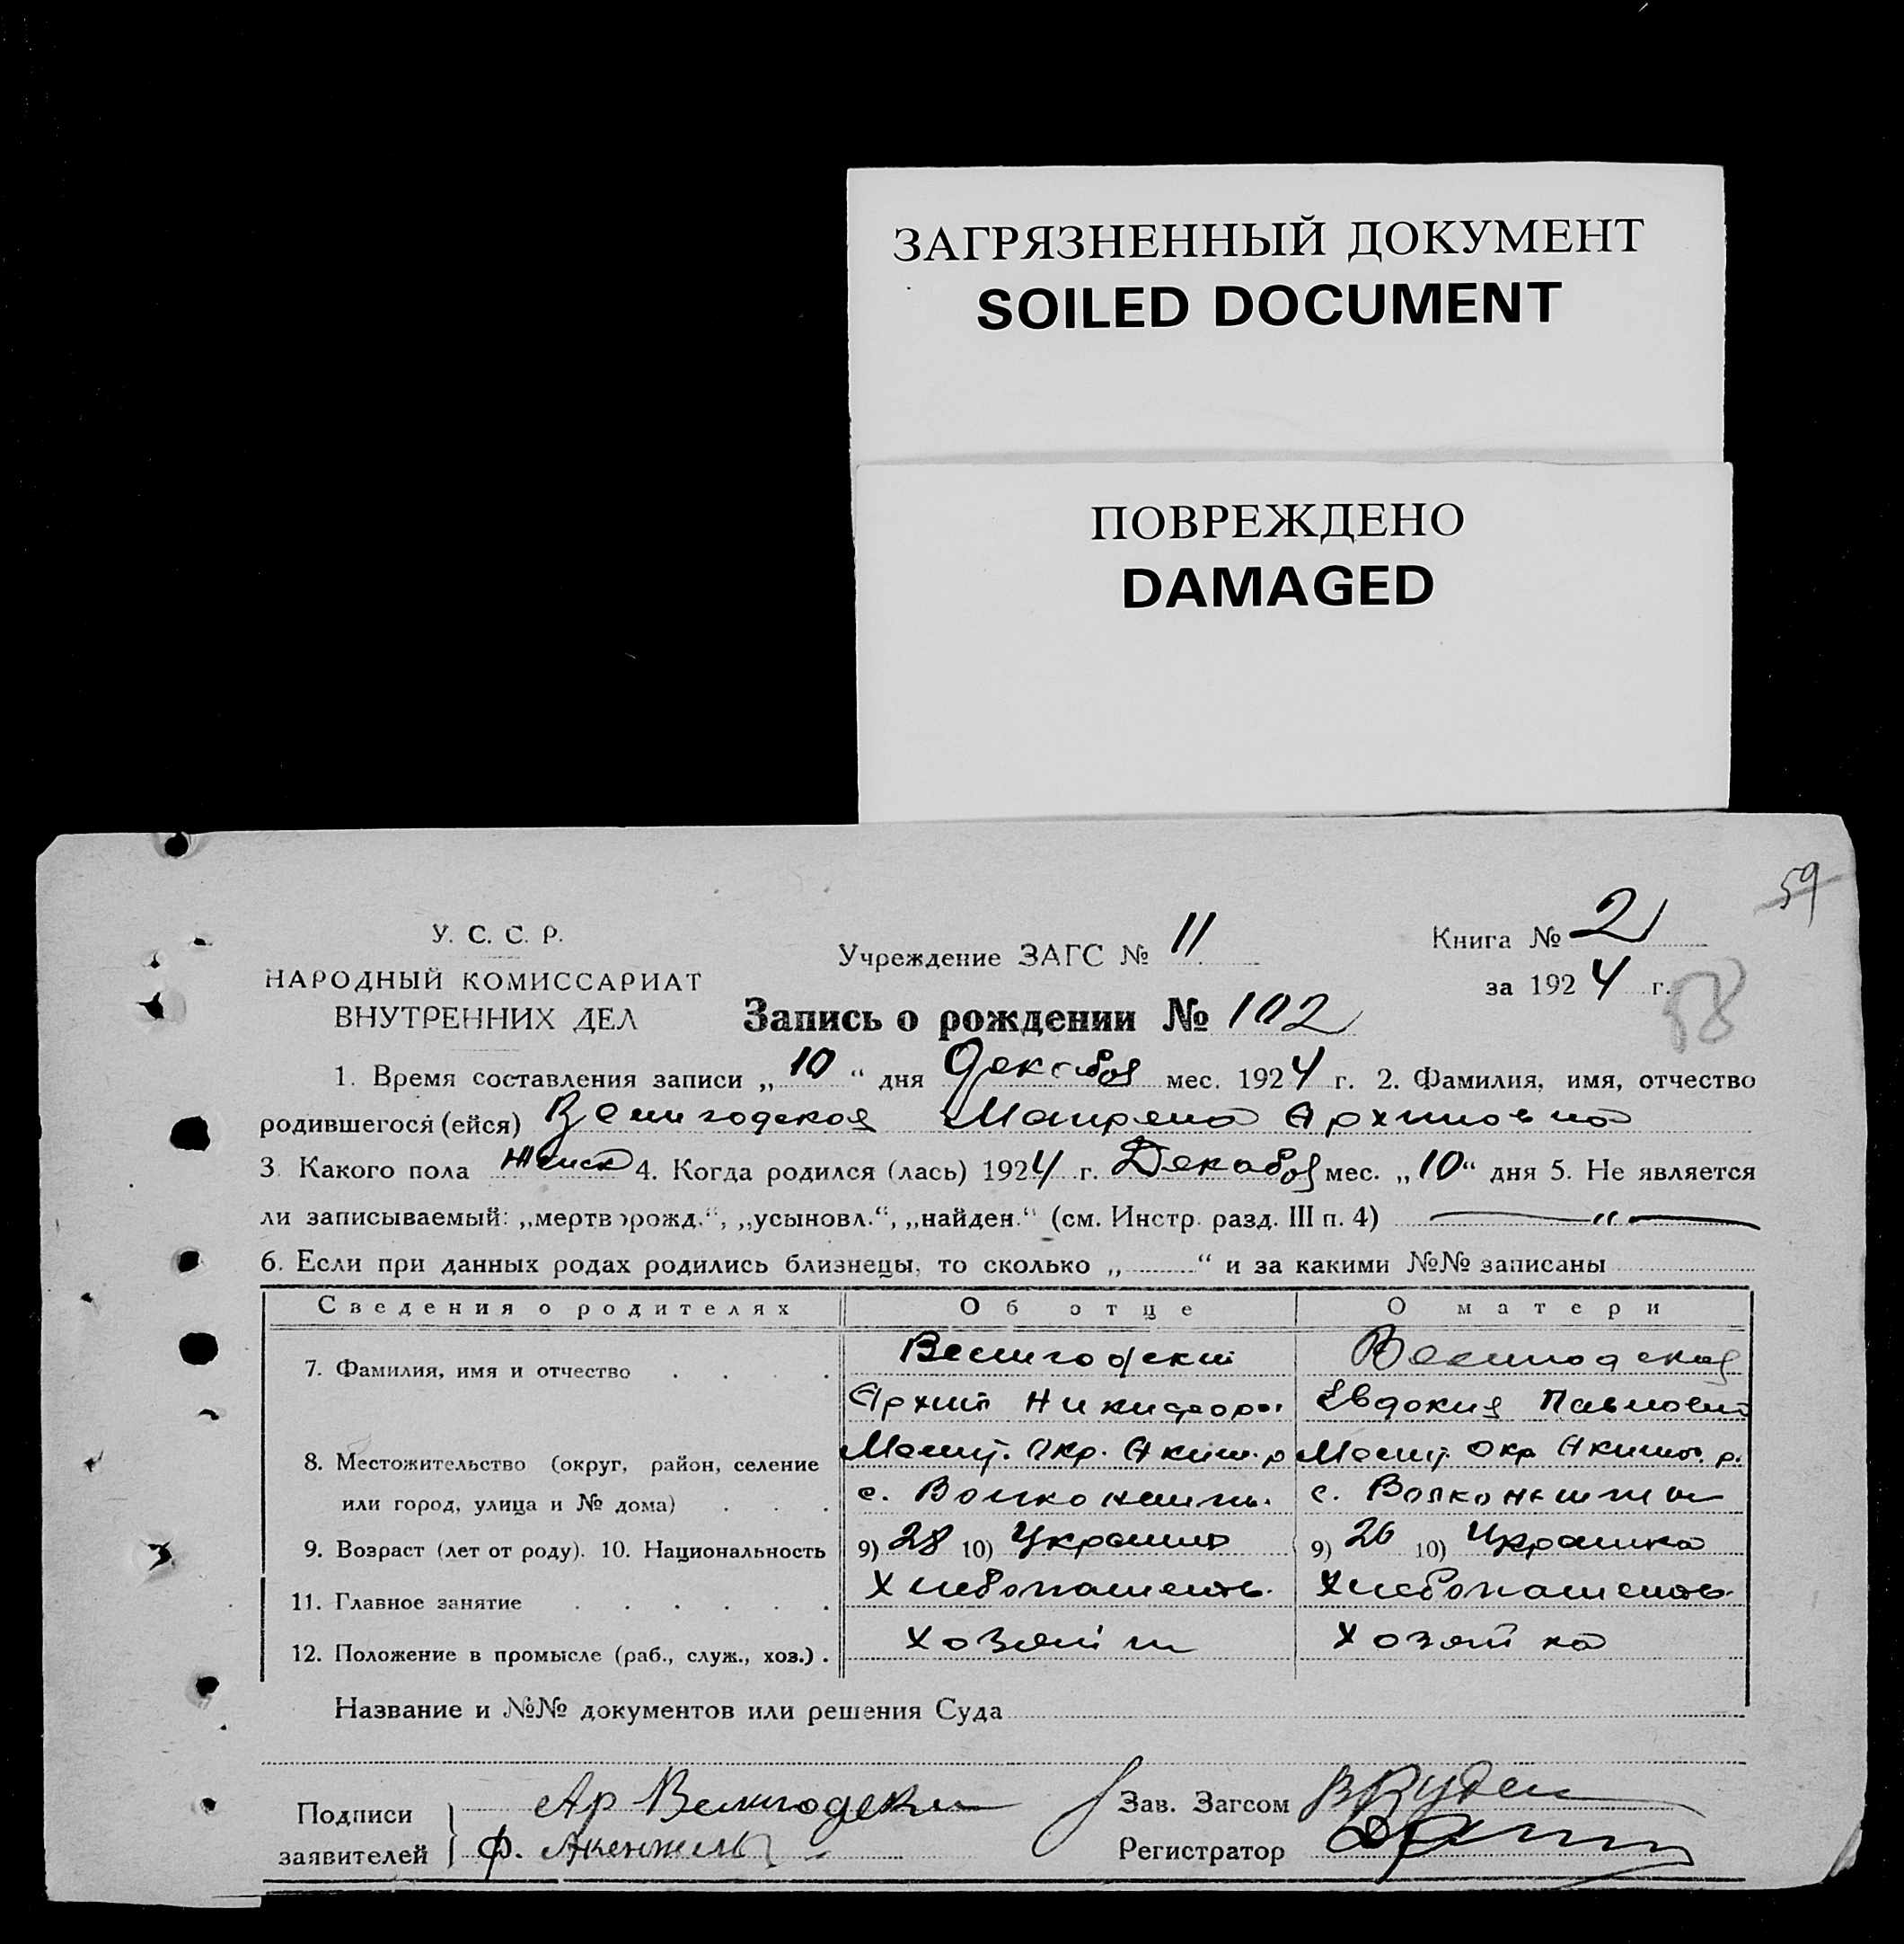 ЗАГРЯЗНЕННЫЙ ДОКУМЕНТ
SOILED DOCUMENT
ПОВРЕЖДЕНО
DAMAGED
59
У. С. С. Р.
НАРОДНЫЙ КОМИССАРИАТ
ВНУТРЕННИХ ДЕЛ
Учреждение ЗАГС № 11
Книга № 2
за 1924 г.
58
Запись о рождении № 102
1. Время составления записи „10“ дня Декабря мес. 1924 г. 2. Фамилия, имя, отчество
родившегося (ейся) Велигодская Матрена Архиповна
3. Какого пола Женск 4. Когда родился (лась) 1924 г. Декабря мес. „10“ дня 5. Не является
ли записываемый: „мертворожд.“, „усыновл.“, „найден.“ (см. Инстр. разд. III п. 4) — “ —
6. Если при данных родах родились близнецы, то сколько „ “ и за какими №№ записаны
Сведения о родителях Об отце О матери
7. Фамилия, имя и отчество Велигодский Велигодская
Архип Никифоров Евдокия Павловна
8. Местожительство (округ, район, селение Мелит. Окр. Аким. р Мелит. Окр. Аким. р.
или город, улица и № дома) с. Волконешты с. Волконешты
9. Возраст (лет от роду). 10. Национальность 9) 28 10) Украинец 9) 26 10) Украинка
11. Главное занятие Хлебопашество Хлебопашество
12. Положение в промысле (раб., служ., хоз.) Хозяин Хозяйка
Название и №№ документов или решения Суда
Подписи Ар Велигодски Зав. Загсом
заявителей Ф. Регистратор